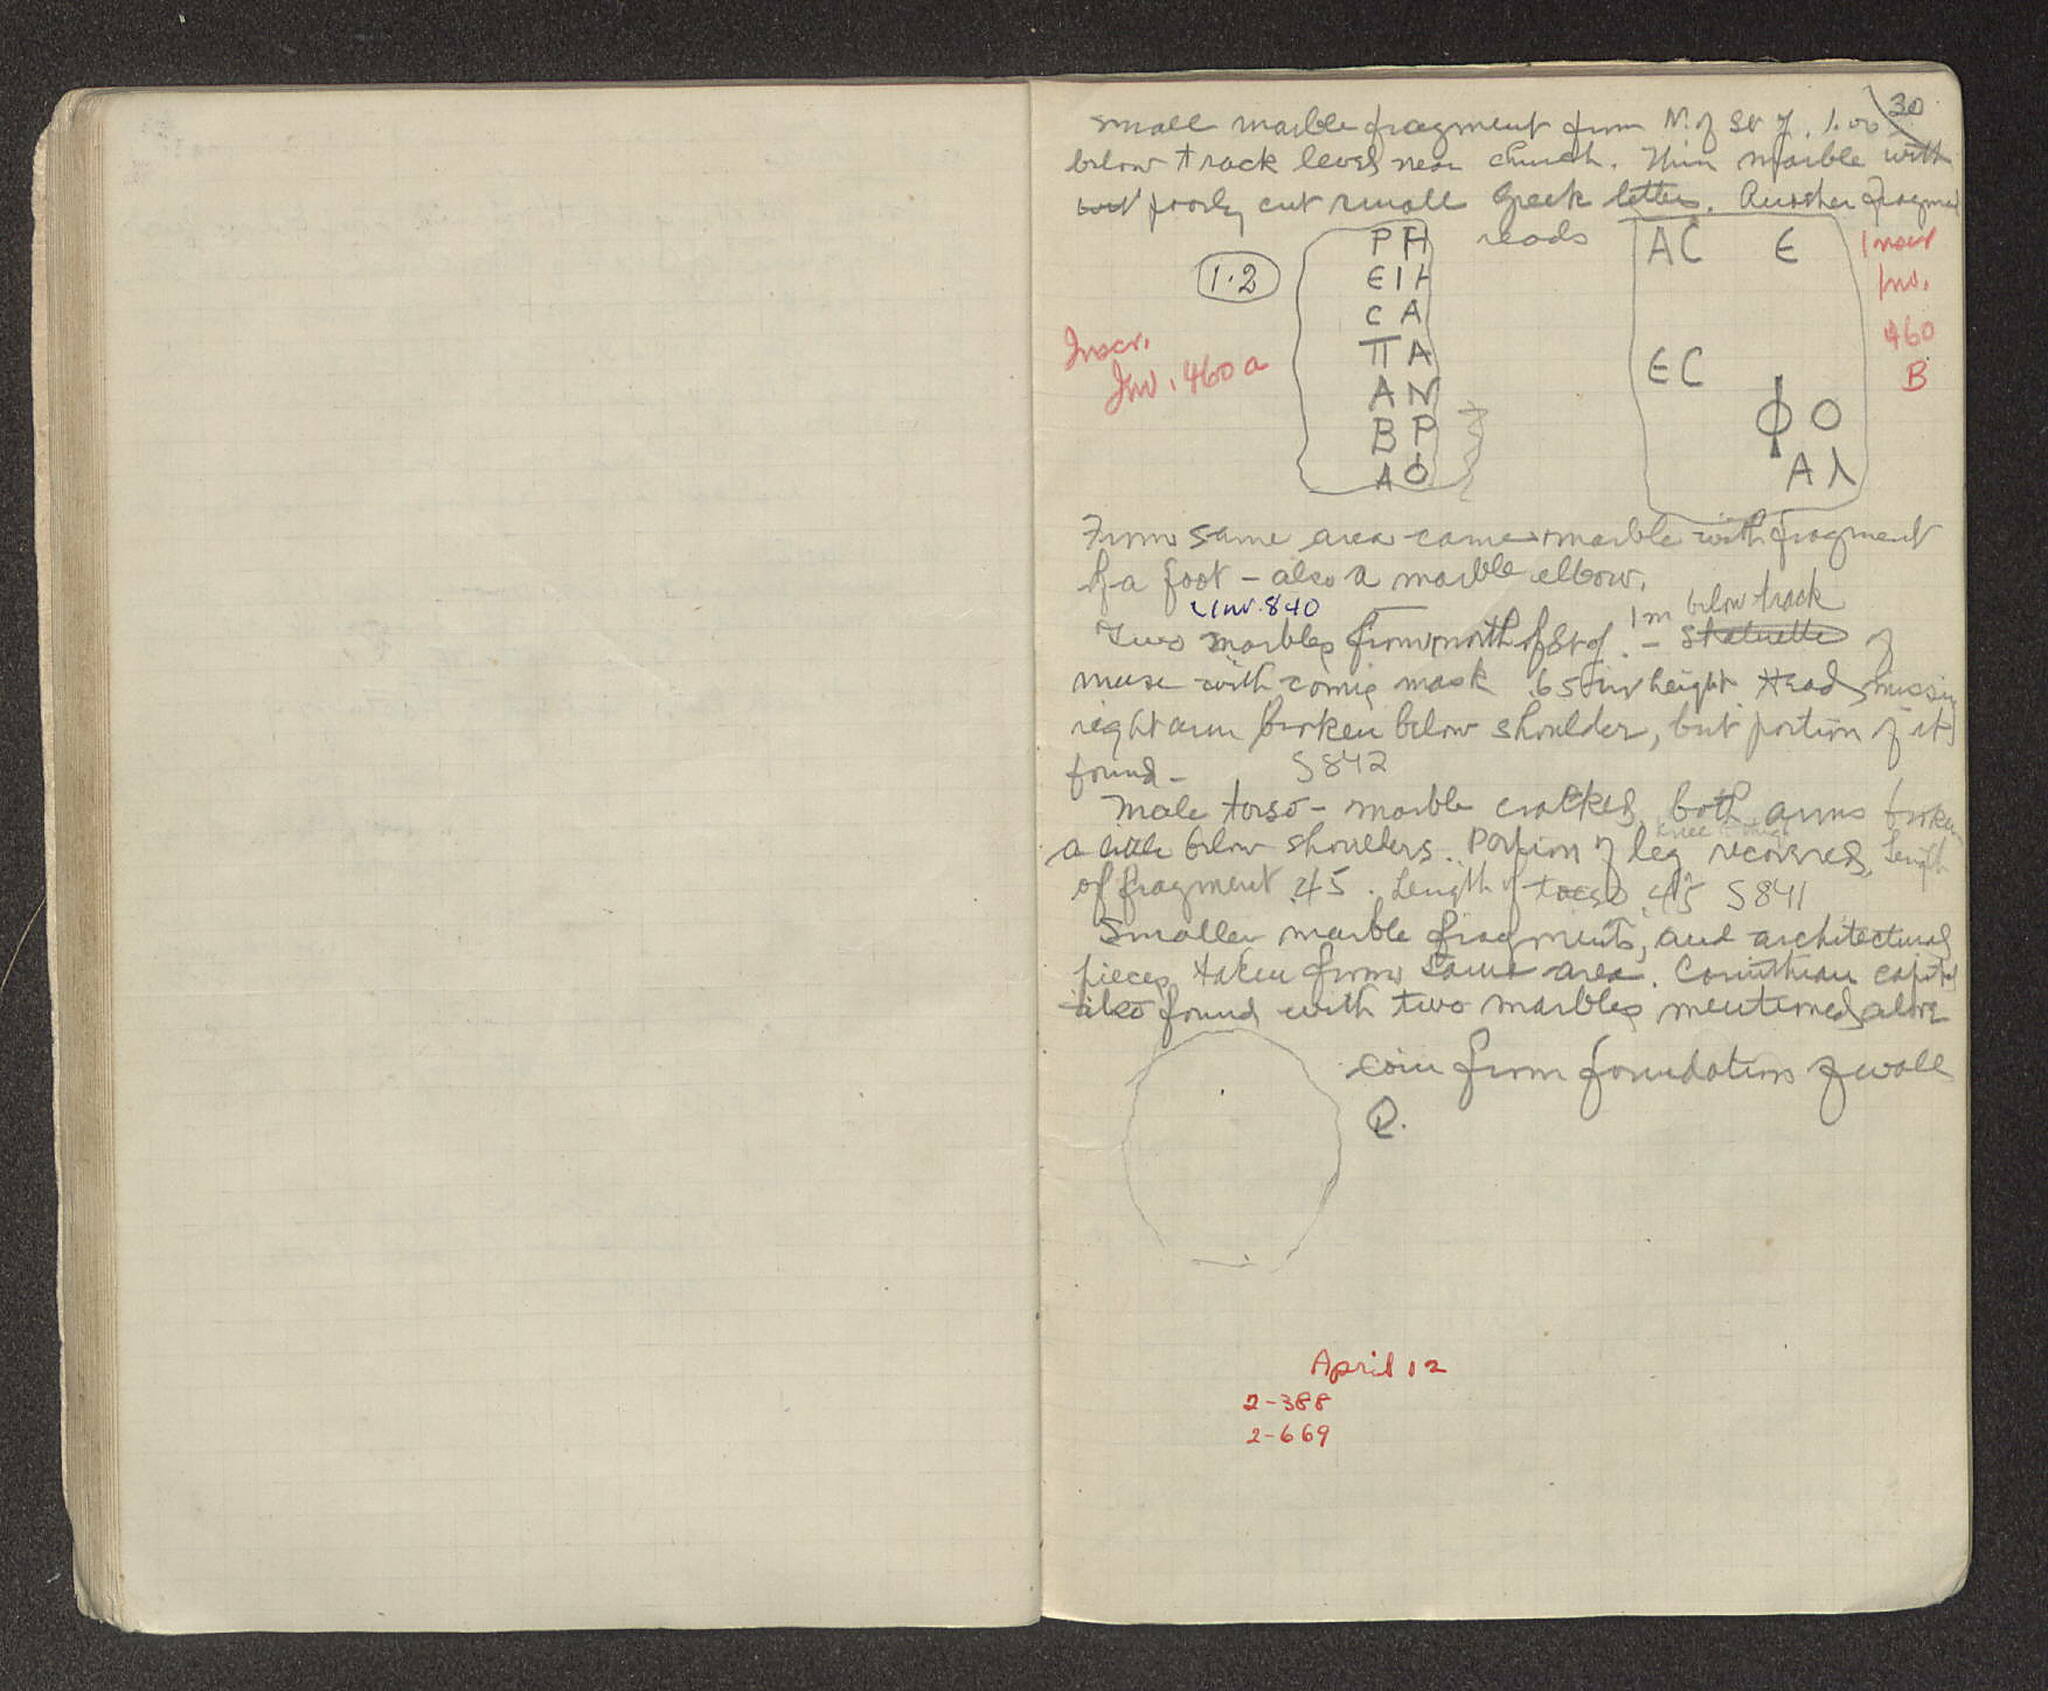 30
small marble fragment from N. of St. J. 1.00
below track level near church. Thin marble with
poorly cut small Greek letters. Another fragment
reads
1·2
P H
Є I H
C A
Π A
A N
B P
A O
AC Є
ЄC
Φ O
A Λ
Inscr.
Inv. 460 a
Inscr
Inv.
460
B
From same area came marble with fragment
of a foot – also a marble elbow.
Inv. 840
1 m below track
Two marbles from north of St. J. – statuette of
muse with comic mask .65 in height Head missing
right arm broken below shoulder, but portion of it
found – S 842
Male torso – marble cracked, both arms broken
knee & thigh
a little below shoulders. Portion of leg recovered, Length
of fragment .45. Length of torso .45 S 841
Smaller marble fragments, and architectural
pieces taken from same area. Corinthian capital
also found with two marbles mentioned above
coin from foundations of wall
Q.
April 12
2-388
2-669